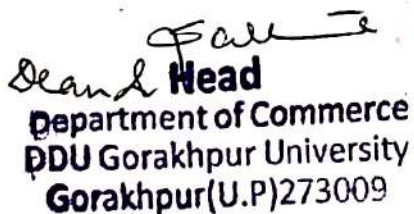 Dean & Head
Department of Commerce
DDU Gorakhpur University
Gorakhpur(U.P)273009